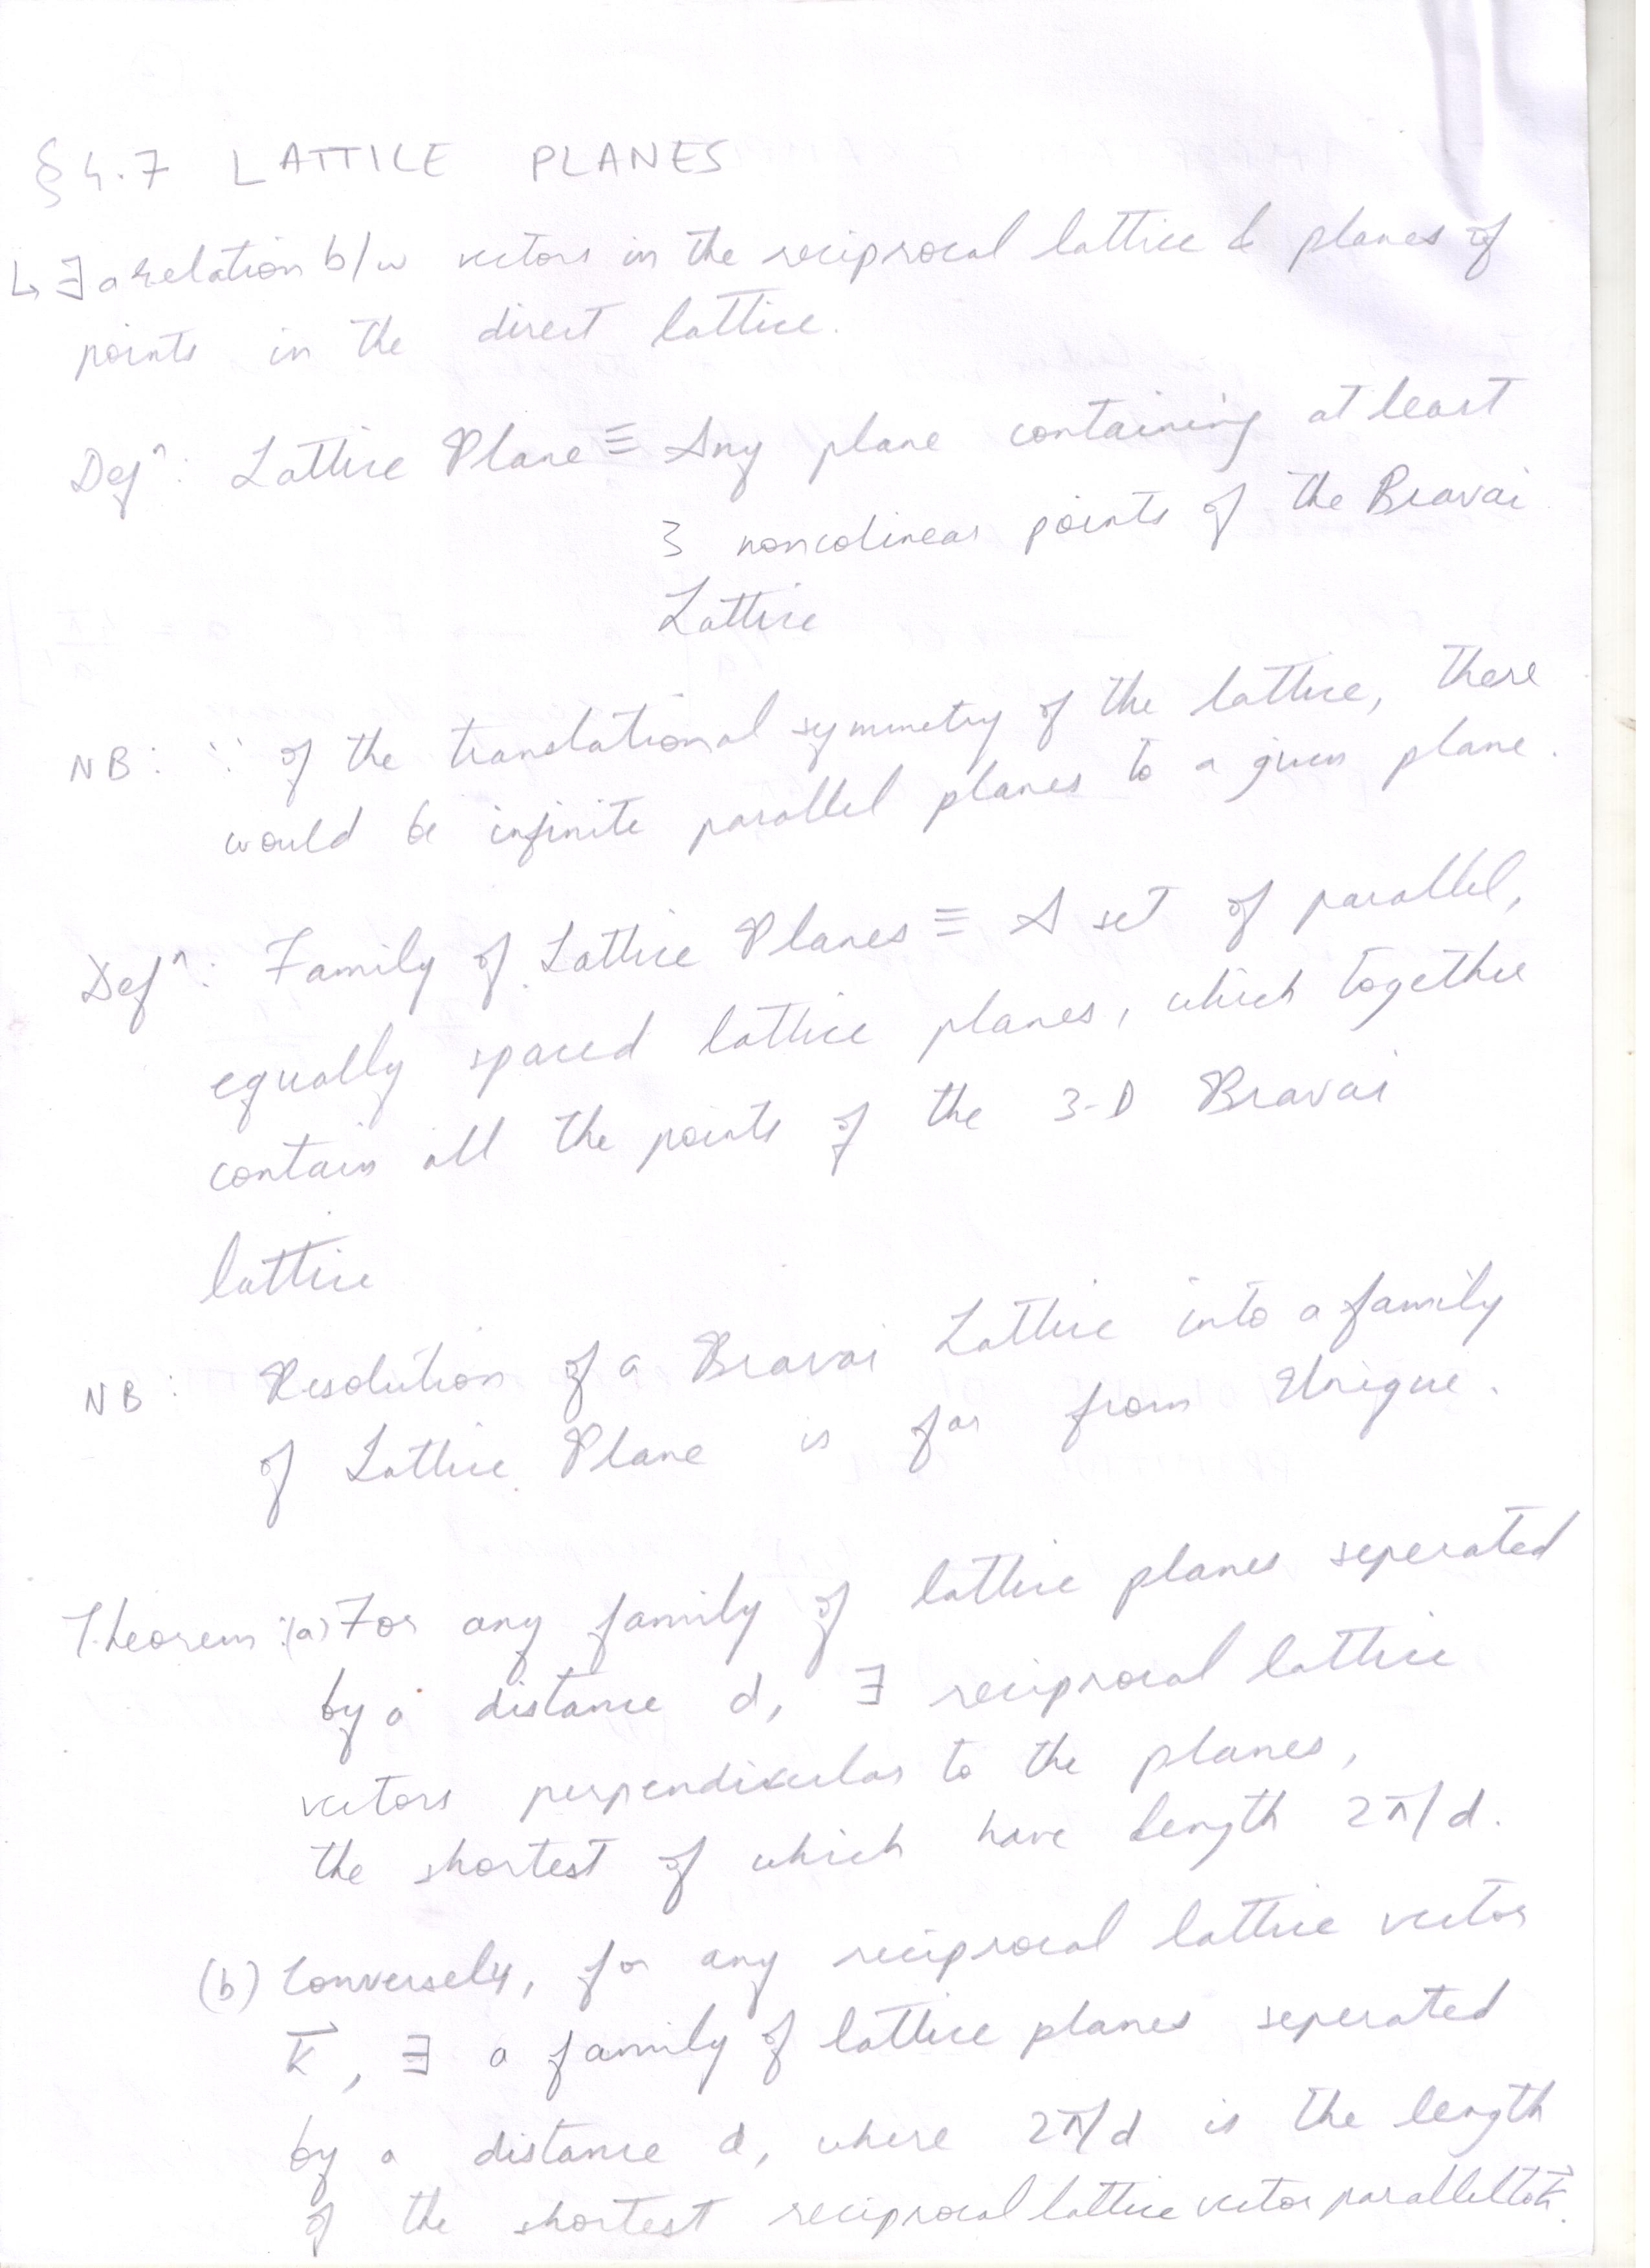 §4.7 LATTICE PLANES
↳ ∃ a relation b/w vectors in the reciprocal lattice & planes of
points in the direct lattice.
Defⁿ: Lattice Plane ≡ Any plane containing at least
3 noncolinear points of the Bravai
Lattice
NB: ∵ of the translational symmetry of the lattice, there
would be infinite parallel planes to a given plane.
Defⁿ: Family of Lattice Planes ≡ A set of parallel,
equally spaced lattice planes, which together
contain all the points of the 3-D Bravai
lattice
NB: Resolution of a Bravai Lattice into a family
of Lattice Plane is far from Unique.
Theorem: (a) For any family of lattice planes seperated
by a distance d, ∃ reciprocal lattice
vectors perpendicular to the planes,
the shortest of which have length 2π/d.
(b) Conversely, for any reciprocal lattice vector
k⃗, ∃ a family of lattice planes seperated
by a distance d, where 2π/d is the length
of the shortest reciprocal lattice vector parallel to k⃗.